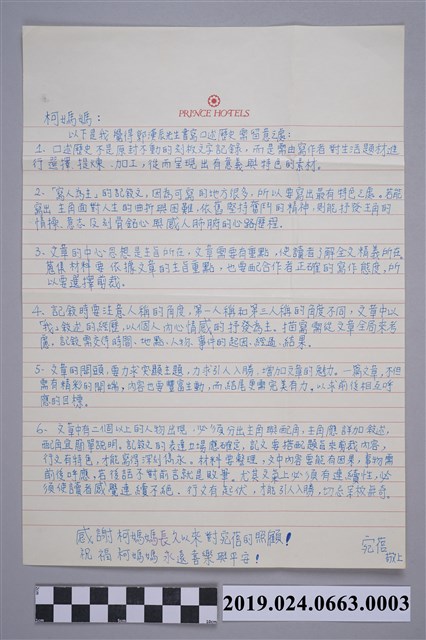 PRINCE HOTELS
柯媽媽：
以下是我覺得鄭漢長先生書寫口述歷史需留意之處：
1. 口述歷史不是原封不動的刻板文字記錄，而是需由寫作者對生活題材進
行選擇、提煉、加工，從而呈現出有意義與特色的素材。
2. 「寫人為主」的記敘文，因為可寫的地方很多，所以要寫出最有特色之處。若能
寫出主角面對人生的曲折與困難，依舊堅持奮鬥的精神，則能抒發主角的
情操、意志及刻骨銘心與感人肺腑的心路歷程。
3. 文章的中心思想是主旨所在，文章需要有重點，使讀者了解全文精義所在。
蒐集材料要依據文章的主旨重點，也要配合作者正確的寫作態度，所
以要選擇剪裁。
4. 記敘時要注意人稱的角度，第一人稱和第三人稱的角度不同，文章中以
「我」敘述的經歷，以個人內心情感的抒發為主。描寫需從文章全局來考
慮，記敘需交待時間、地點、人物、事件的起因、經過、結果。
5. 文章的開頭，要力求突顯主題，力求引人入勝，增加文章的魅力。一篇文章，不但
需有精彩的開端，內容也要豐富生動，而結尾更需完美有力。以求前後相互呼
應的目標。
6. 文章中有二個以上的人物出現，必須分出主角與配角，主角應詳加敘述，
配角宜簡單說明，記敘文的表達立場應確定，記文要搭配題旨來剪裁內容，
行文有特色，才能寫得深刻雋永。材料要整理，文中內容要能有因果，事物需
前後呼應，若後語不對前言就是敗筆。尤其文氣上必須有連續性，必
須使讀者感覺連續不絕。行文有起伏，才能引人入勝，切忌呆板無奇。
感謝柯媽媽長久以來對宛信的照顧！
祝福柯媽媽永遠喜樂與平安！
宛信
敬上
2019.024.0663.0003